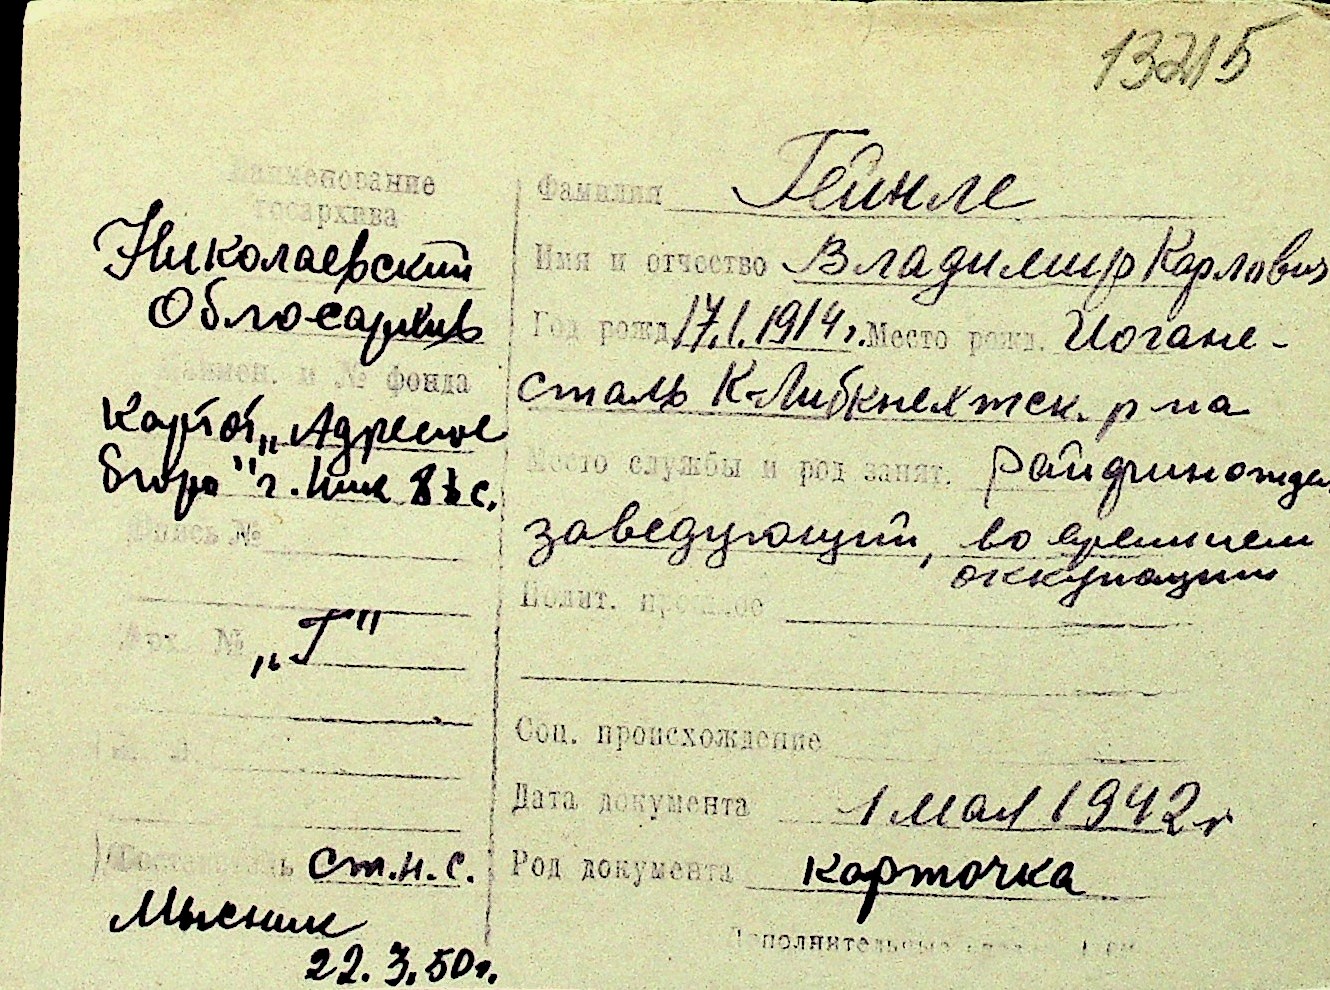 13215
Наименование
госархива
Николаевский
Облгосархив
Наимен. и № фонда
Картот. „Адресное
бюро" г. Ник
Опись №
Арх. № „Г"
Составитель ст.н.с.
22.3.50г.
Фамилия Гейнле
Имя и отчество Владимир Карлович
Год рожд. 17.1.1914г. Место рожд. Иогане-
сталь К-Либкнехтск. р-на
Место службы и род занят. Райфинотдел
заведующий, во время нем
оккупации
Полит. прошлое
Соц. происхождение
Дата документа 1 мая 1942г
Род документа карточка
Дополнительные